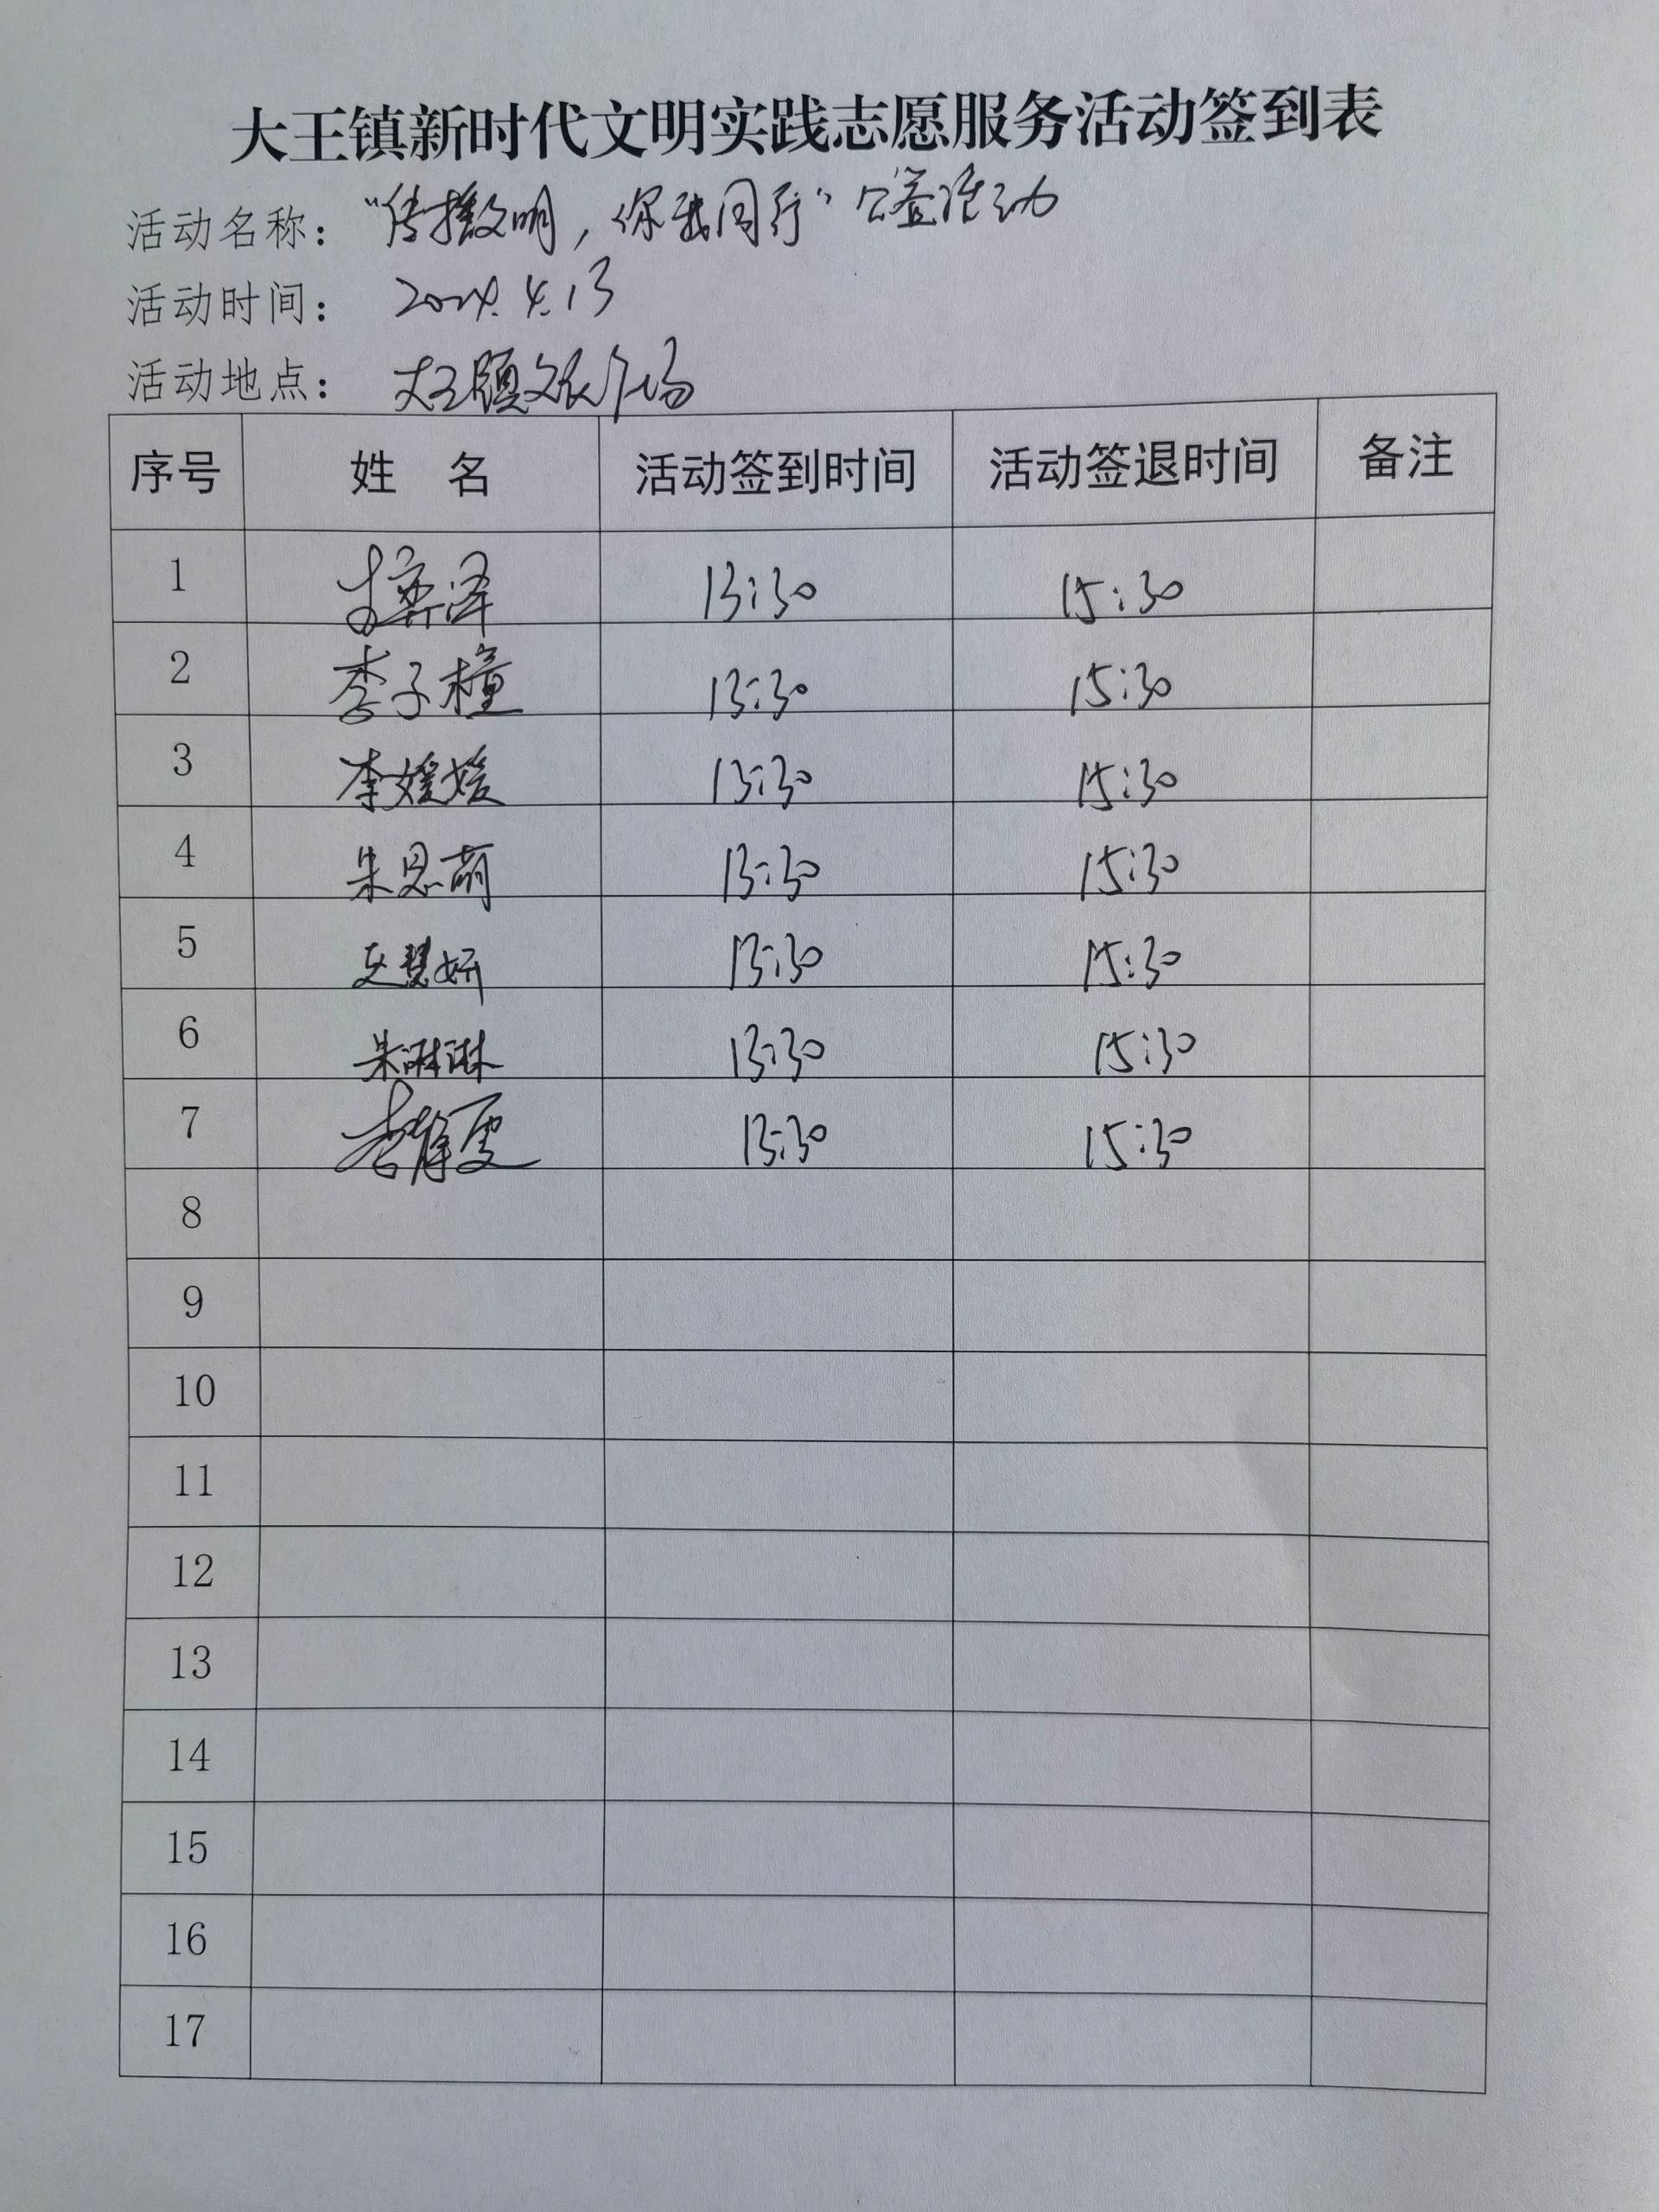 大王镇新时代文明实践志愿服务活动签到表
活动名称: “传播文明,你我同行”公益活动
活动时间: 2024.4.13
活动地点: 大王镇文化广场
序号 姓 名 活动签到时间 活动签退时间 备注
1 李奕泽 13:30 15:30
2 李子橦 13:30 15:30
3 李媛媛 13:30 15:30
4 朱思萌 13:30 15:30
5 慧妍 13:30 15:30
6 朱琳琳 13:30 15:30
7 李雯 13:30 15:30
8
9
10
11
12
13
14
15
16
17